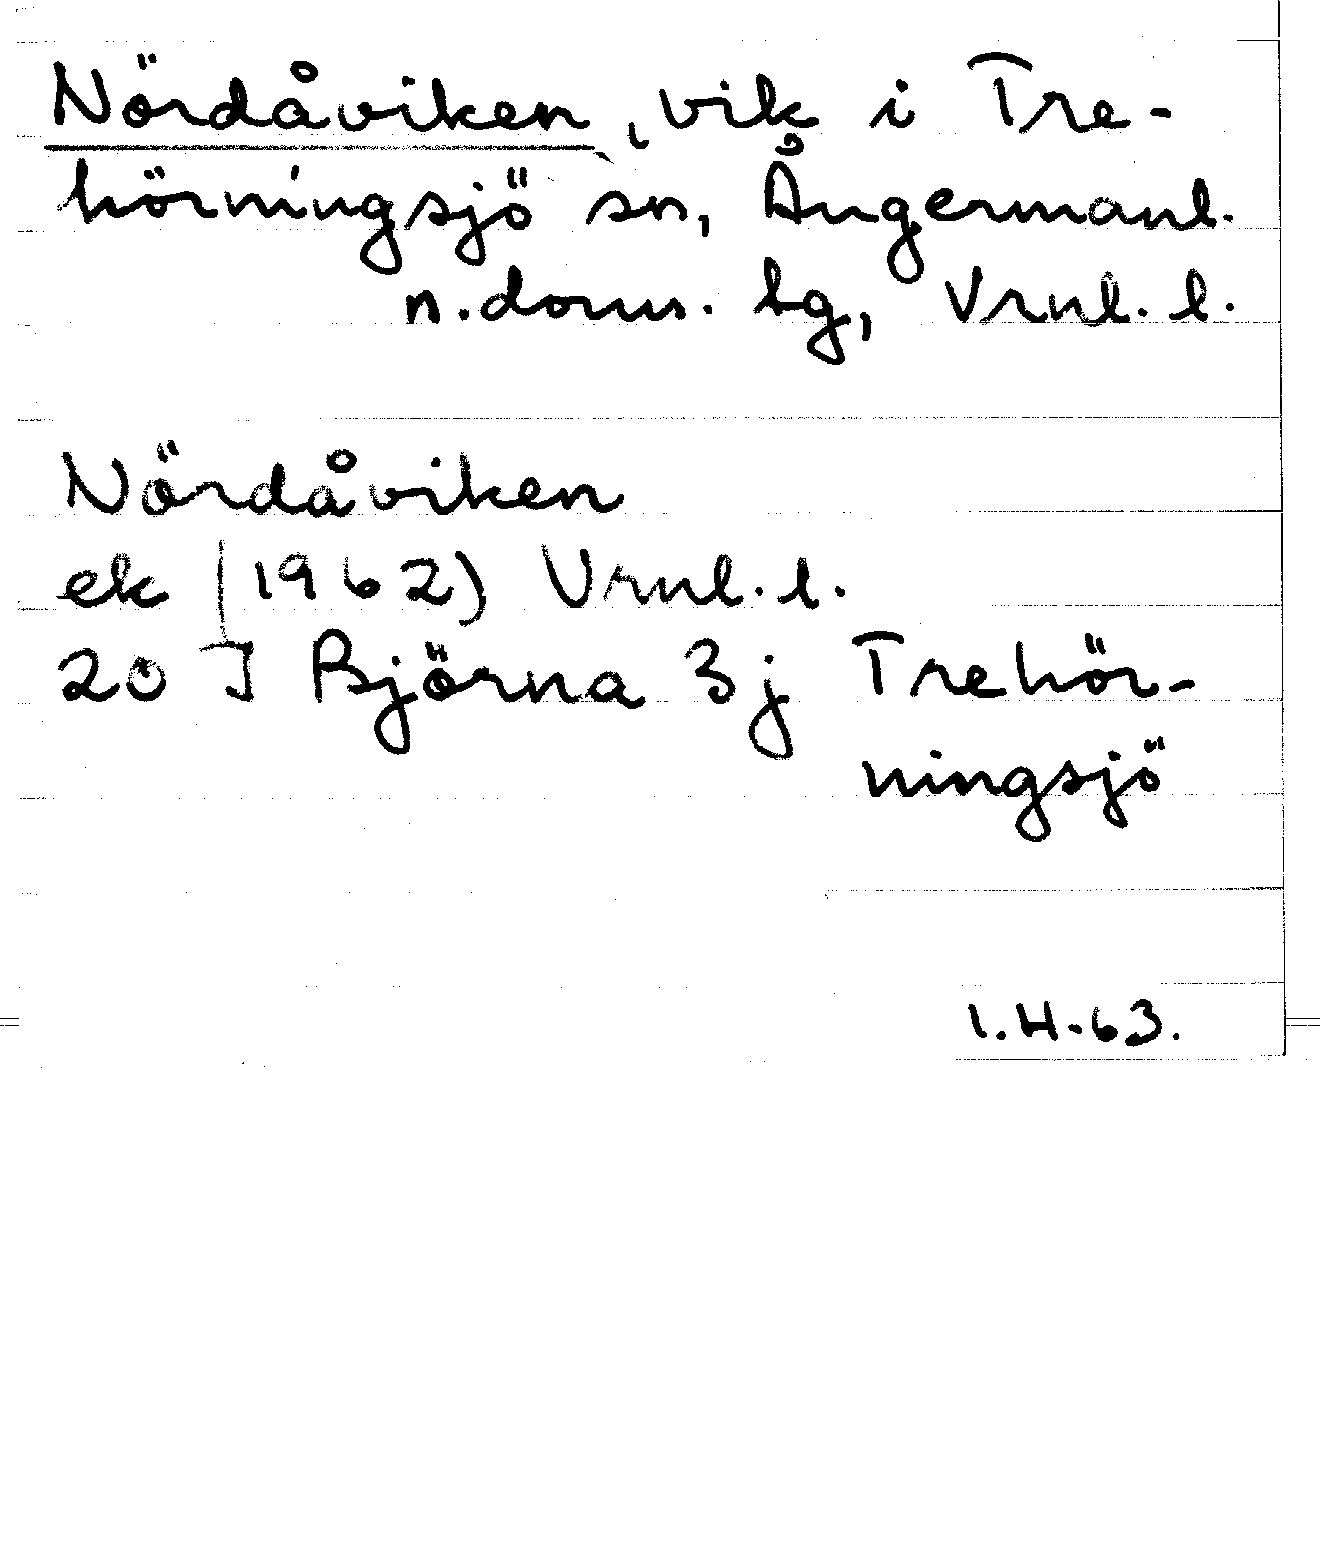 Nördåviken, vik i Tre-
hörningsjö sn, Ångermanl.
n. doms. lg, Vrnl. l.
Nördåviken
ek (1962) Vrnl. l.
20 J Björna 3j Trehör-
ningsjö
I.H-63.